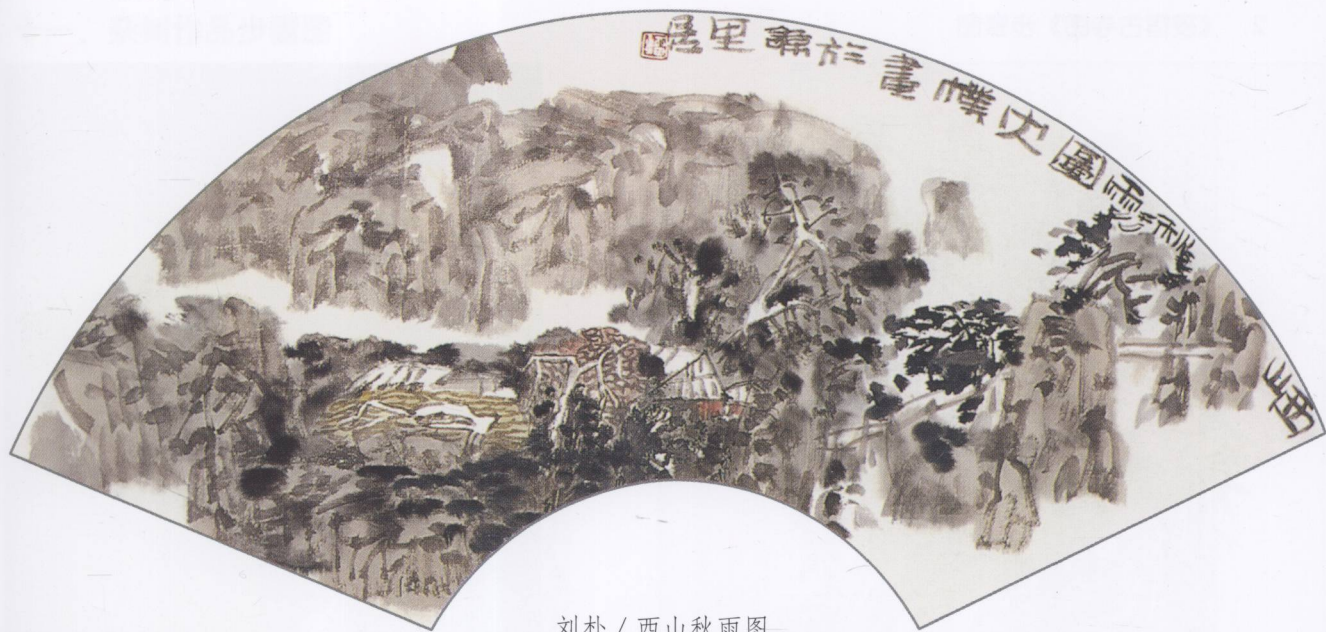 西山秋雨圖樸畫於里居
刘朴 / 西山秋雨图